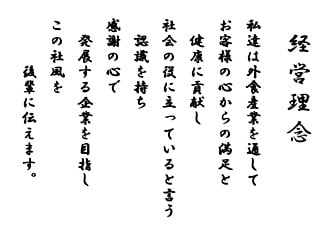 経営理念
私達は外食産業を通して
お客様の心からの満足と
健康に貢献し
社会の役に立っていると言う
認識を持ち
感謝の心で
発展する企業を目指し
この社風を
後輩に伝えます。